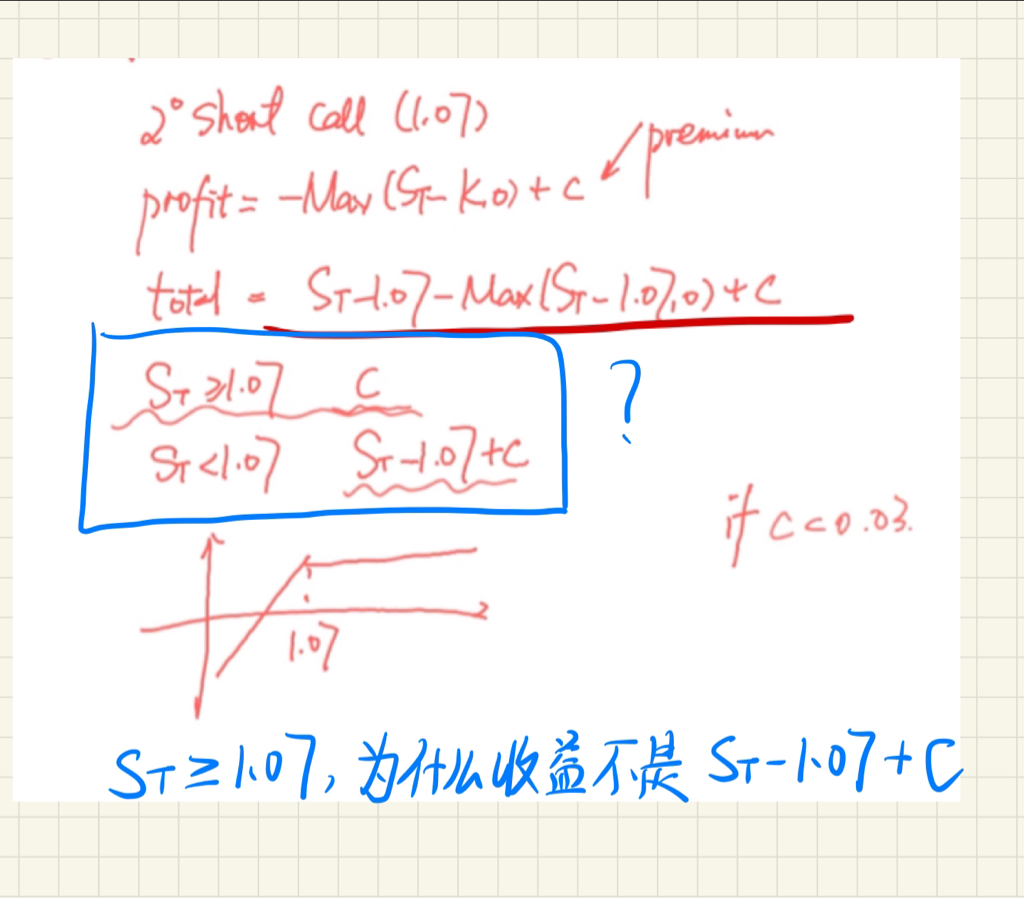 2° short call (1.07)
premium
profit = -Max(S_T - K, 0) + C
total = S_T - 1.07 - Max(S_T - 1.07, 0) + C
S_T ≥ 1.07 C
?
S_T < 1.07 S_T - 1.07 + C
if C < 0.03.
1.07
S_T ≥ 1.07, 为什么收益不是 S_T - 1.07 + C